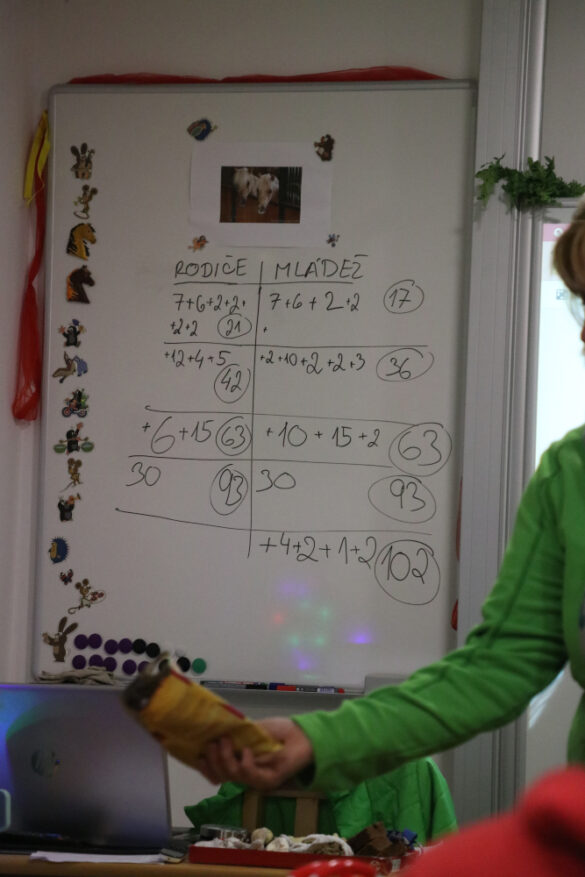 RODIČE | MLÁDEŽ
7+6+2+2+ 7+6+2+2 17
+2+2 21 +
+12+4+5 +2+10+2+2+3 36
42
+6+15 63 +10+15+2 63
30 93 30 93
+4+2+1+2 102